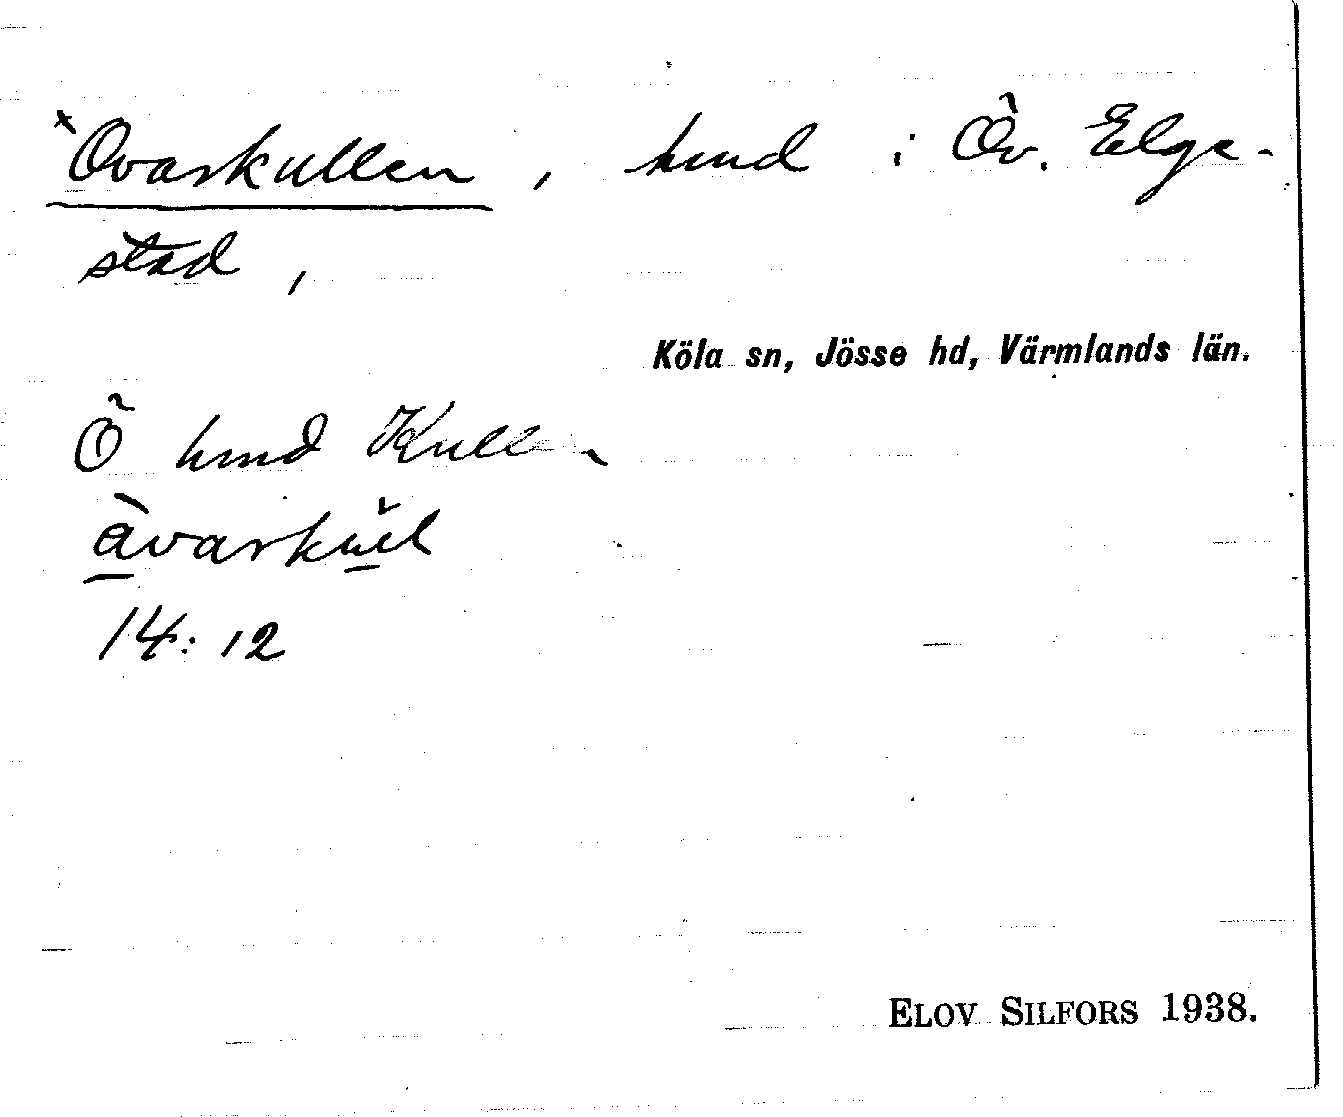 Övarskullen, hmd i Öv. Elge-
stad,
Köla sn, Jösse hd, Värmlands län.
Ö hmd Kullen
åvarskul
14:12
ELOV SILFORS 1938.